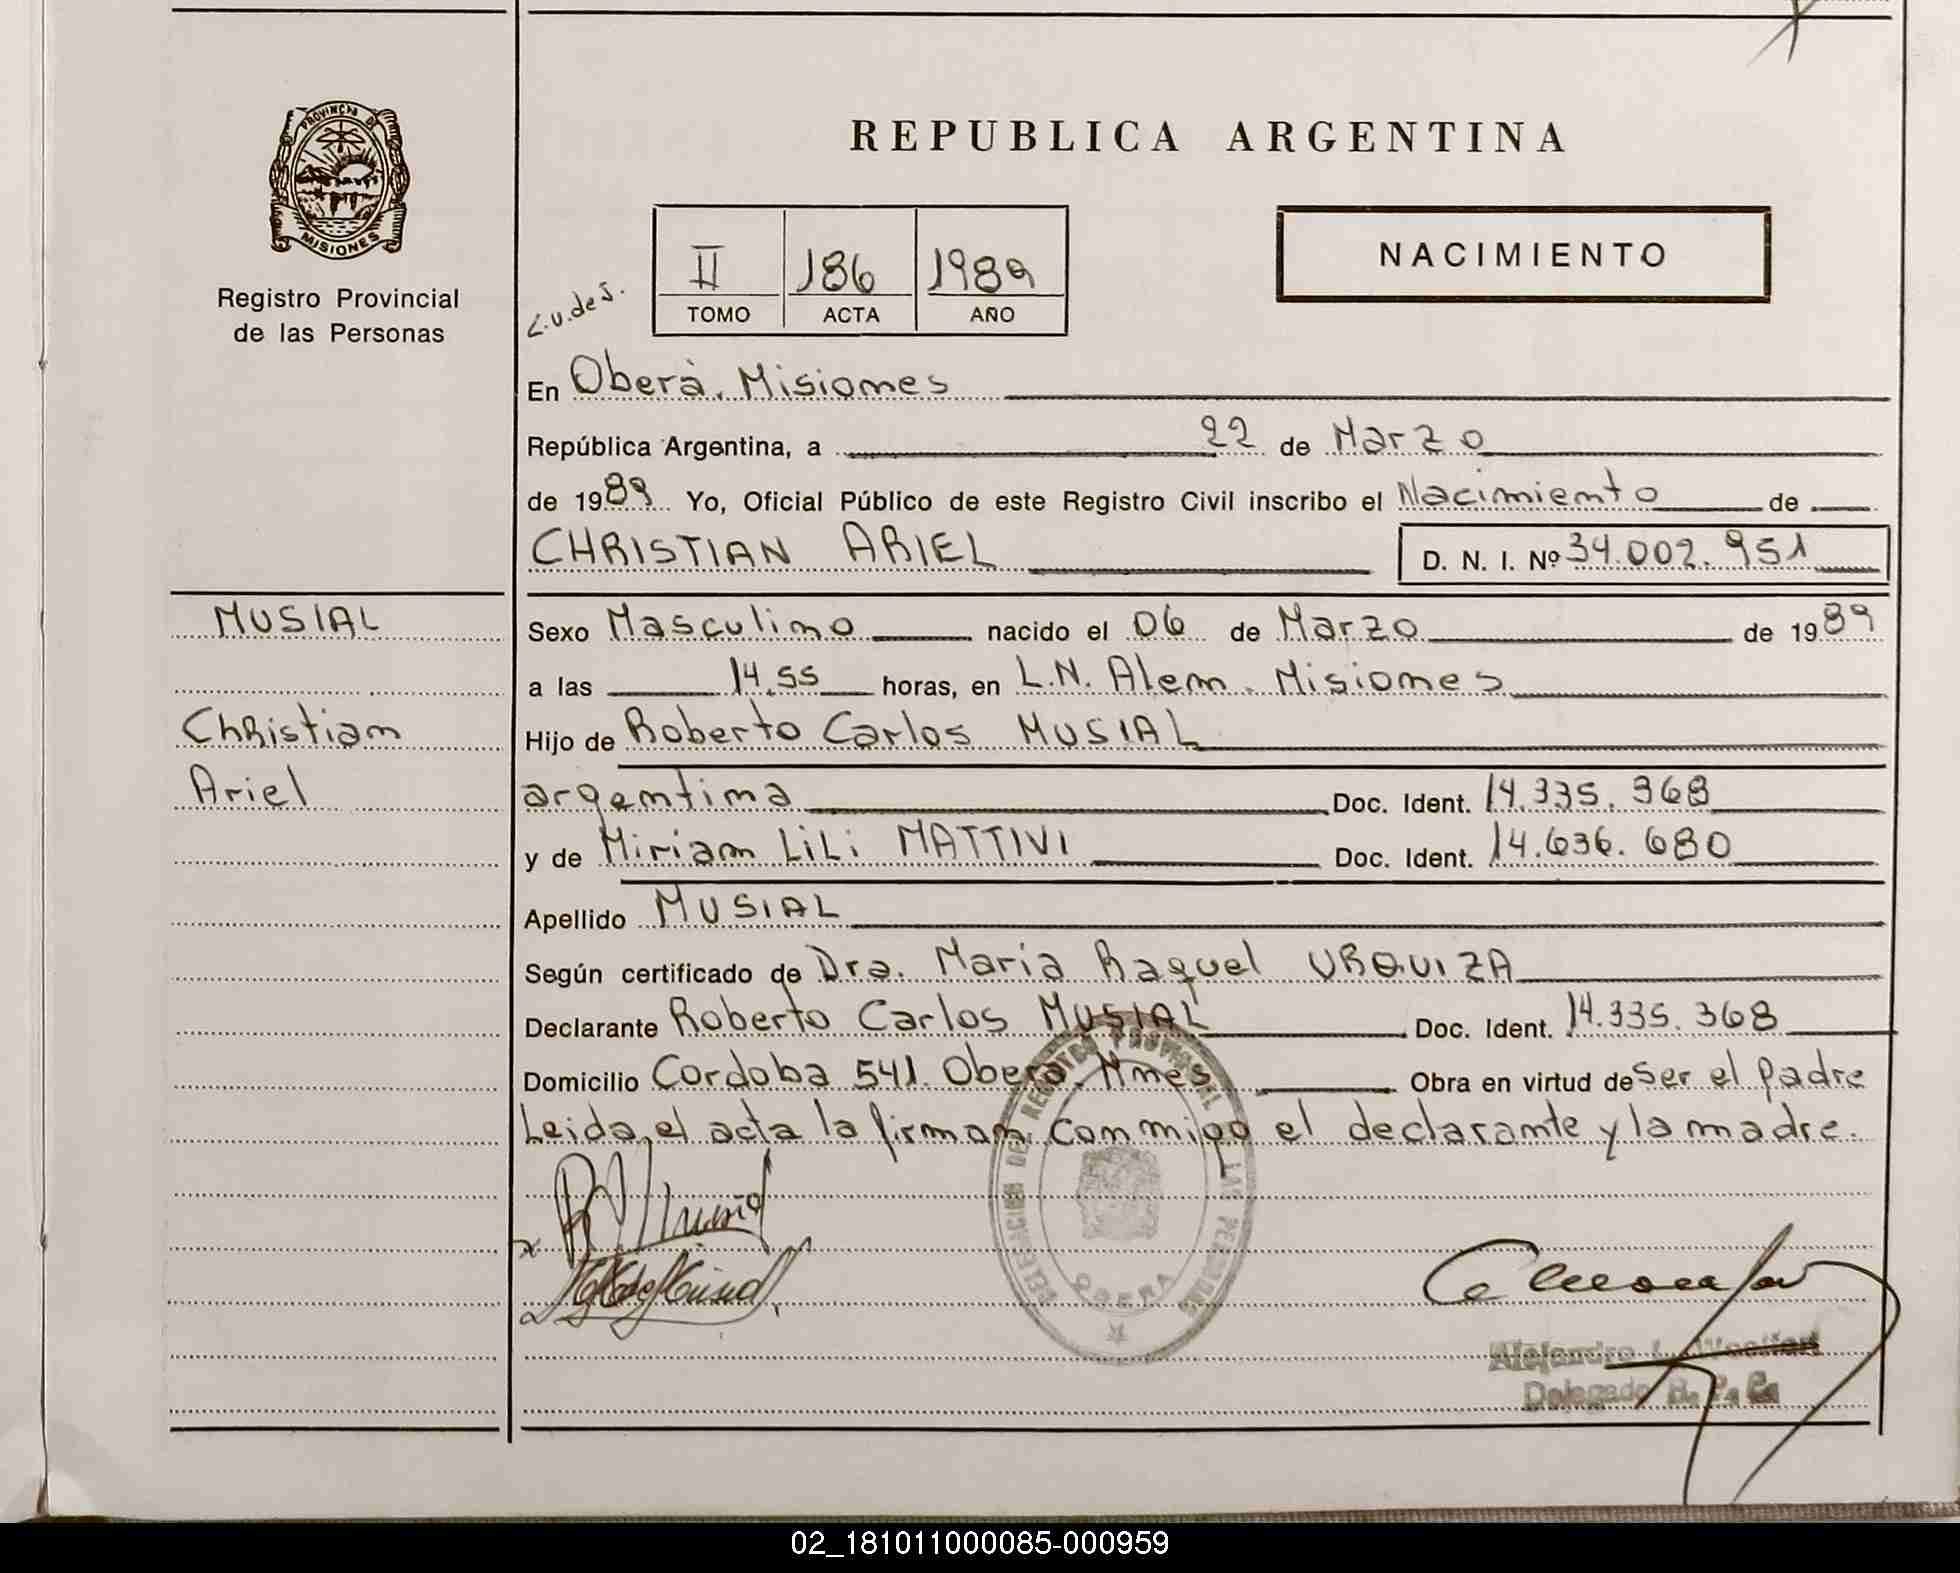 PROVINCIA DE
MISIONES
Registro Provincial
de las Personas
REPUBLICA ARGENTINA
NACIMIENTO
II 186 1989
TOMO ACTA AÑO
En Oberà. Misiones
República Argentina, a 22 de Marzo
de 1989 Yo, Oficial Público de este Registro Civil inscribo el Nacimiento de
CHRISTIAN ARIEL D. N. I. Nº 34.002.951
MUSIAL
Christian
Ariel
Sexo Masculino nacido el 06 de Marzo de 1989
a las 14.55 horas, en L.N. Alem. Misiones
Hijo de Roberto Carlos MUSIAL
argentina Doc. Ident. 14.335.368
y de Miriam LiLi MATTIVI Doc. Ident. 14.636.680
Apellido MUSIAL
Según certificado de Dra. Maria Raquel URQUIZA
Declarante Roberto Carlos MUSIAL Doc. Ident. 14.335.368
Domicilio Cordoba 541. Obera. Mnes Obra en virtud de Ser el padre
Leida el acta la firman conmigo el declarante y la madre.
DELEGACION DE REGISTRO PROVINCIAL DE LAS PERSONAS
OBERA
Alejandro
Delegado R. P. P.
02_181011000085-000959